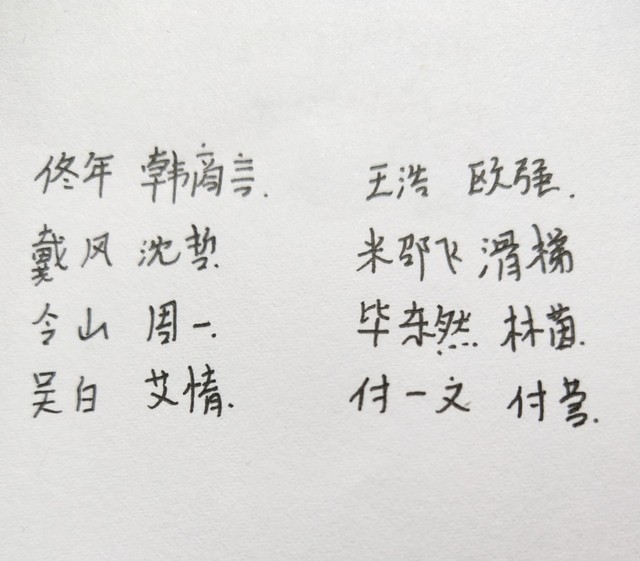 佟年 韩商言. 王浩 欧强.
戴风 沈哲. 米邵飞 滑梯
令山 周一. 毕东然 林茵.
吴白 艾情. 付一文 付莹.